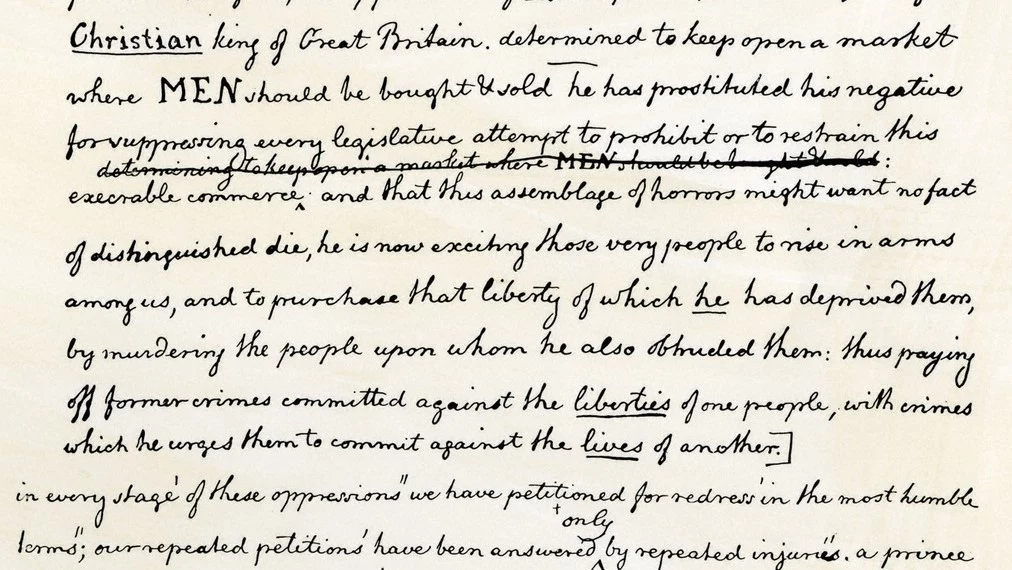 Christian king of Great Britain. determined to keep open a market
where MEN should be bought & sold he has prostituted his negative
for suppressing every legislative attempt to prohibit or to restrain this
determining to keep open a market where MEN should be bought & sold:
execrable commerce: and that this assemblage of horrors might want no fact
of distinguished die, he is now exciting those very people to rise in arms
among us, and to purchase that liberty of which he has deprived them,
by murdering the people upon whom he also obtruded them: thus paying
off former crimes committed against the liberties of one people, with crimes
which he urges them to commit against the lives of another.]
in every stage of these oppressions we have petitioned for redress in the most humble
only
terms; our repeated petitions have been answered by repeated injuries. a prince